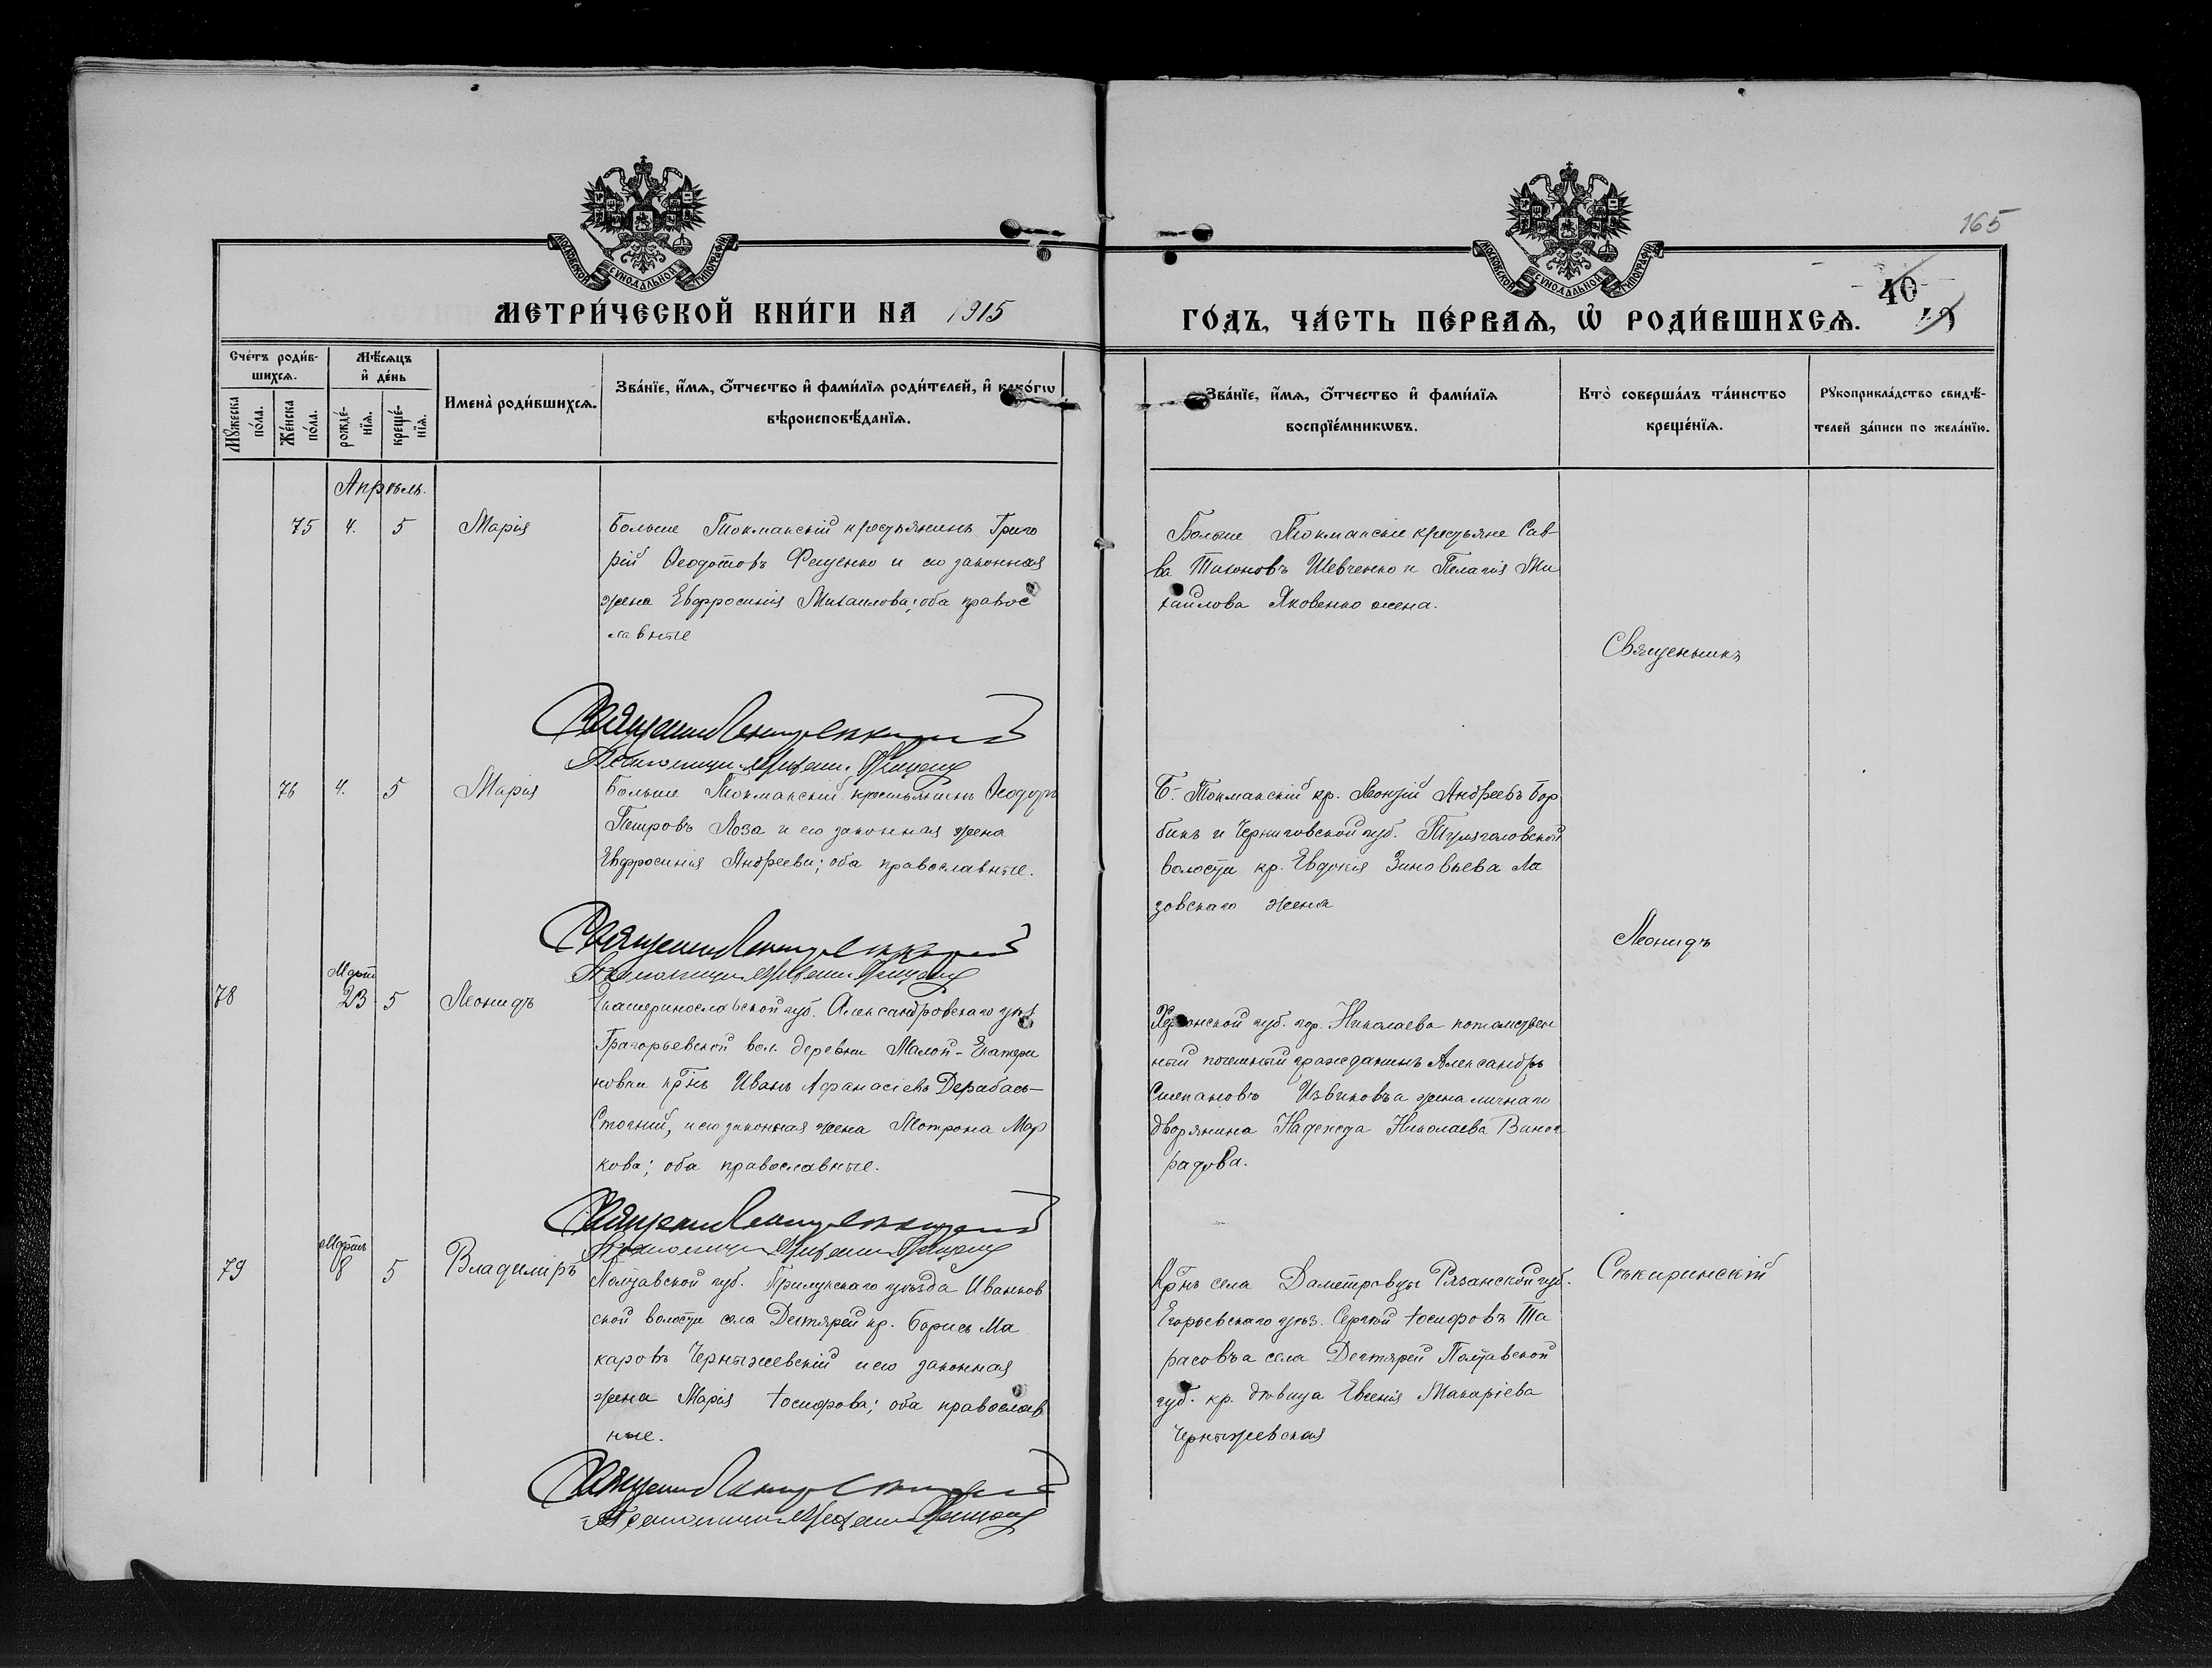 165
МОСКОВСКОЙ СѴНОДАЛЬНОЙ ТИПОГРАФІИ
МОСКОВСКОЙ СѴНОДАЛЬНОЙ ТИПОГРАФІИ
МЕТРИ́ЧЕСКОЙ КНИ́ГИ НА 1915
ГО́ДЪ, ЧА́СТЬ ПЕ́РВАЯ, Ѡ РОДИ́ВШИХСЯ.
40
Сче́тъ роди́в-
шихся.
Мѣсяцъ
и де́нь
Мꙋжеска
по́ла.
Же́нска
по́ла.
рожде́-
нїя.
креще́-
нїя.
Имена̀ роди́вшихся.
Зва́нїе, и́мя, о́тчество и фами́лїя роди́телей, и како́гѡ
вѣроисповѣ́данїя.
Зва́нїе, и́мя, о́тчество и фами́лїя
воспрїе́мникѡвъ.
Кто̀ соверша́лъ та́инство
креще́нїя.
Рꙋкоприкла́дство свидѣ́-
телей за́писи по жела́нїю.
Апрѣль.
75 4. 5 Марія
Больше Токманскій крестьянинъ Григо
рій Ѳеодотовъ Фещенко и его законная
жена Евфросинія Михаилова; оба правос
лавные
Больше Токманскіе крестьяне Сав-
ва Тихоновъ Шевченко и Пелагія Ми
хайлова Яковенко жена.
Священникъ
76 4. 5 Марія
Больше Токманскій крестьянинъ Ѳеодоръ
Петровъ Лоза и его законная жена
Евфросинія Андреева; оба православные.
Б. Токманскій кр. Леонтій Андреевъ Бор
бикъ и Черниговской губ.
волости кр. Евдокія Зиновьева Ла
зовскаго жена
Леонидъ
78 Мартъ 23 5 Леонидъ
Екатеринославской губ. Александровскаго уѣз
Григорьевской вол. деревни Малой-Екатери
новки кр-нъ Иванъ Афанасіевъ Дерабасъ-
Стогній, и его законная жена Мотрона Мар
кова; оба православные.
Херсонской губ. гор. Николаева потомствен
ный почетный гражданинъ Александръ
Степановъ и жена личнаго
дворянина Надежда Николаева Виног
радова.
79 Мартъ 8 5 Владиміръ
Полтавской губ. Прилукскаго уѣзда Иванков
ской волости села Дегтярей кр. Борисъ Ма
каровъ Чернышевскій и его законная
жена Марія Іосифова; оба православ
ные.
Кр-нъ села Рязанской губ.
Егорьевскаго уѣз. Сергѣй Іосифовъ Та
расовъ и села Дегтярей Полтавской
губ. кр. дѣвица Евгенія Макаріева
Чернышевская
Сѣкиринскій